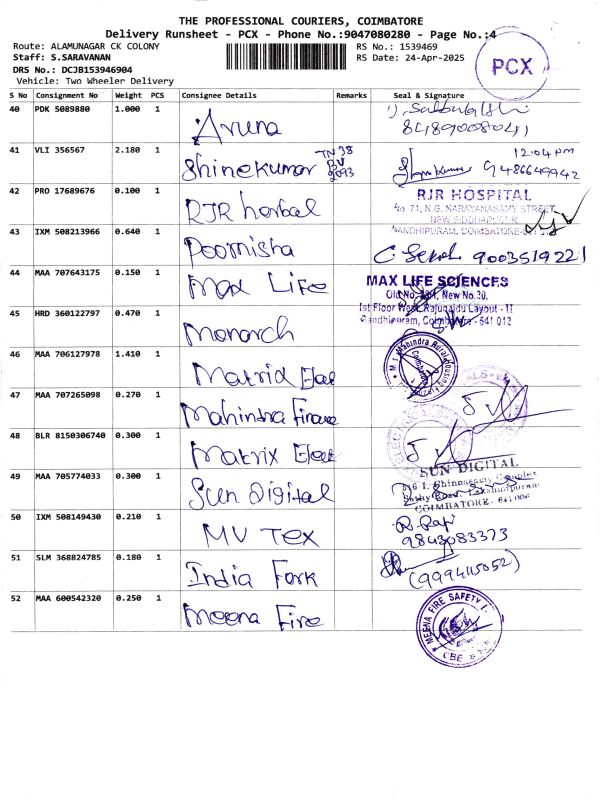 THE PROFESSIONAL COURIERS, COIMBATORE
Delivery Runsheet - PCX - Phone No.:9047080280 - Page No.:4
Route: ALAMUNAGAR CK COLONY
RS No.: 1539469
Staff: S.SARAVANAN
RS Date: 24-Apr-2025
DRS No.: DCJB153946904
Vehicle: Two Wheeler Delivery
PCX
S No Consignment No Weight PCS Consignee Details Remarks Seal & Signature
40 PDK 5089880 1.000 1 Aruna
8489008041
41 VLI 356567 2.180 1 Shinekumar TN 38 BV 2093 12:04 PM
9486649942
42 PRO 17689676 0.100 1 RJR herbal RJR HOSPITAL
No 71, N.G. NARAYANASAMY STREET,
NEW SIDDHAPUDUR
GANDHIPURAM, COIMBATORE
43 IXM 508213966 0.640 1 Poornisha 9003519221
44 MAA 707643175 0.150 1 Max Life MAX LIFE SCIENCES
New No.30,
1st Floor West Rajunaidu Layout - II
Gandhipuram, Coimbatore - 641 012
45 HRD 360122797 0.470 1 Monarch
46 MAA 706127978 1.410 1 Matrix Elec
47 MAA 707265098 0.270 1 Mahindra Finance
48 BLR 8150306740 0.300 1 Matrix Elec
49 MAA 705774033 0.300 1 Sun Digital SUN DIGITAL
COIMBATORE
50 IXM 508149430 0.210 1 MV TEX R. Raji
9843083373
51 SLM 368824785 0.180 1 India Fork (9994115052)
52 MAA 600542320 0.250 1 Meena Fire MEENA FIRE SAFETY
CBE